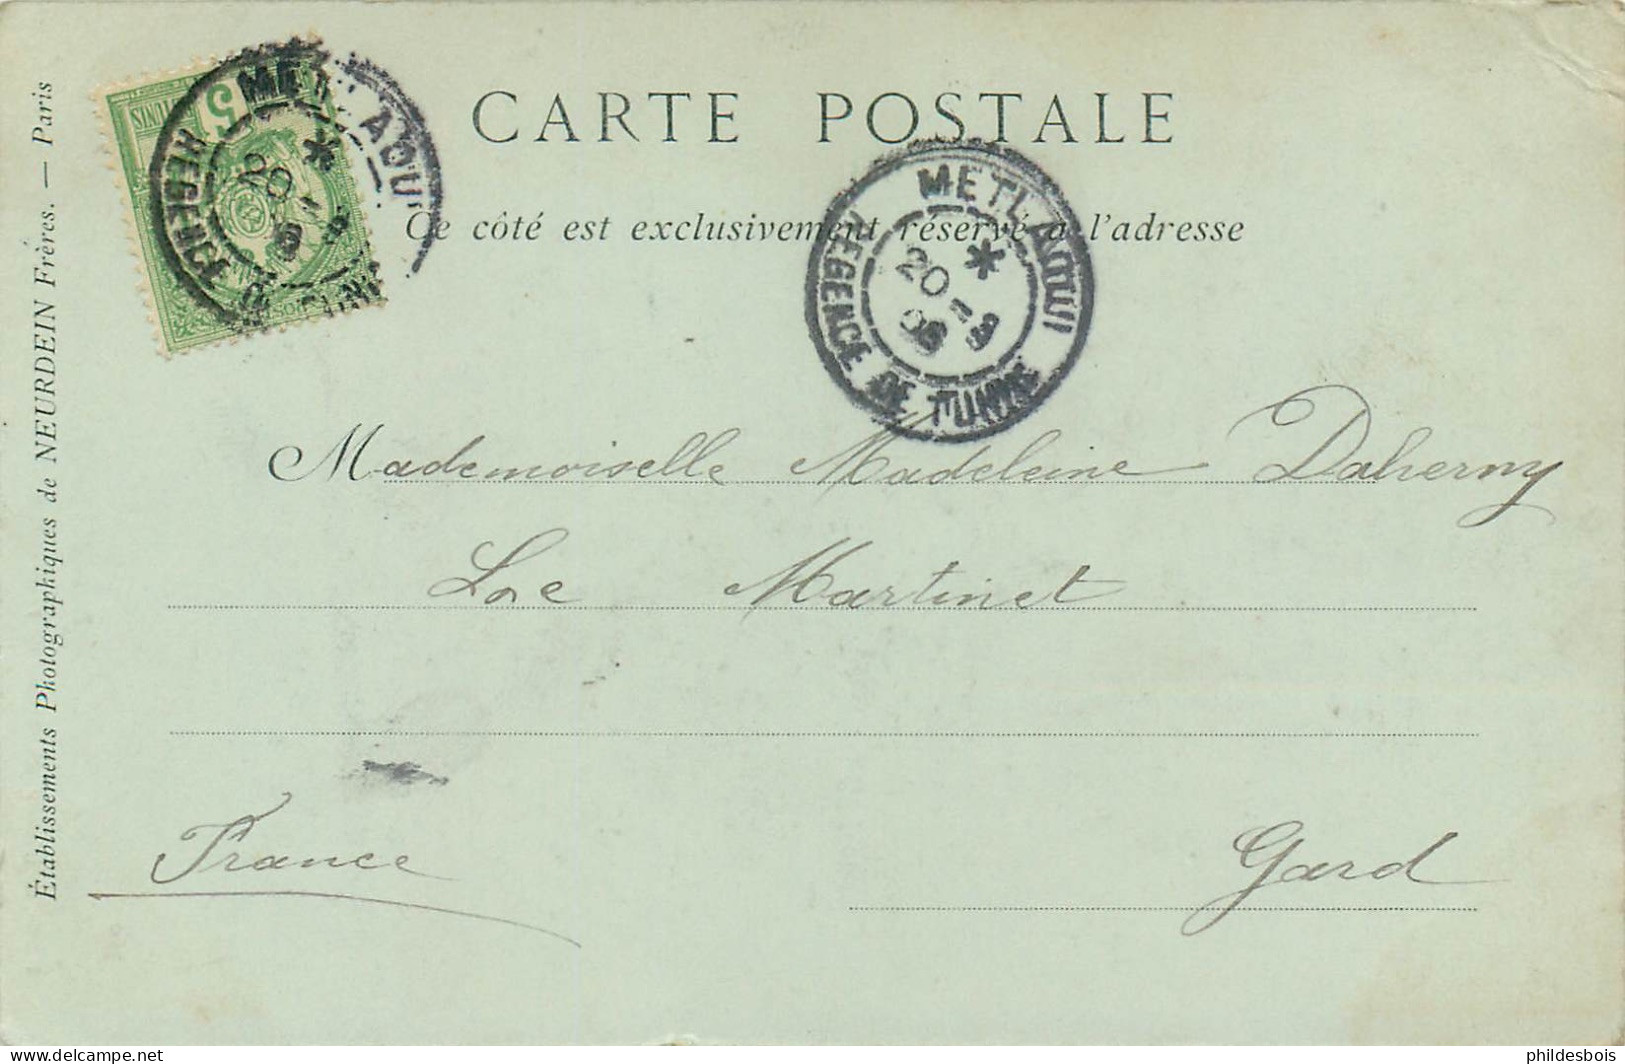 CARTE POSTALE
Ce côté est exclusivement réservé à l'adresse
Établissements Photographiques de NEURDEIN Frères. — Paris
5
TUNIS
METLAOUI
20
REGENCE DE
METLAOUI
20
REGENCE DE TUNIS
Mademoiselle Madeleine
Martinet
France
Gard
phildesbois